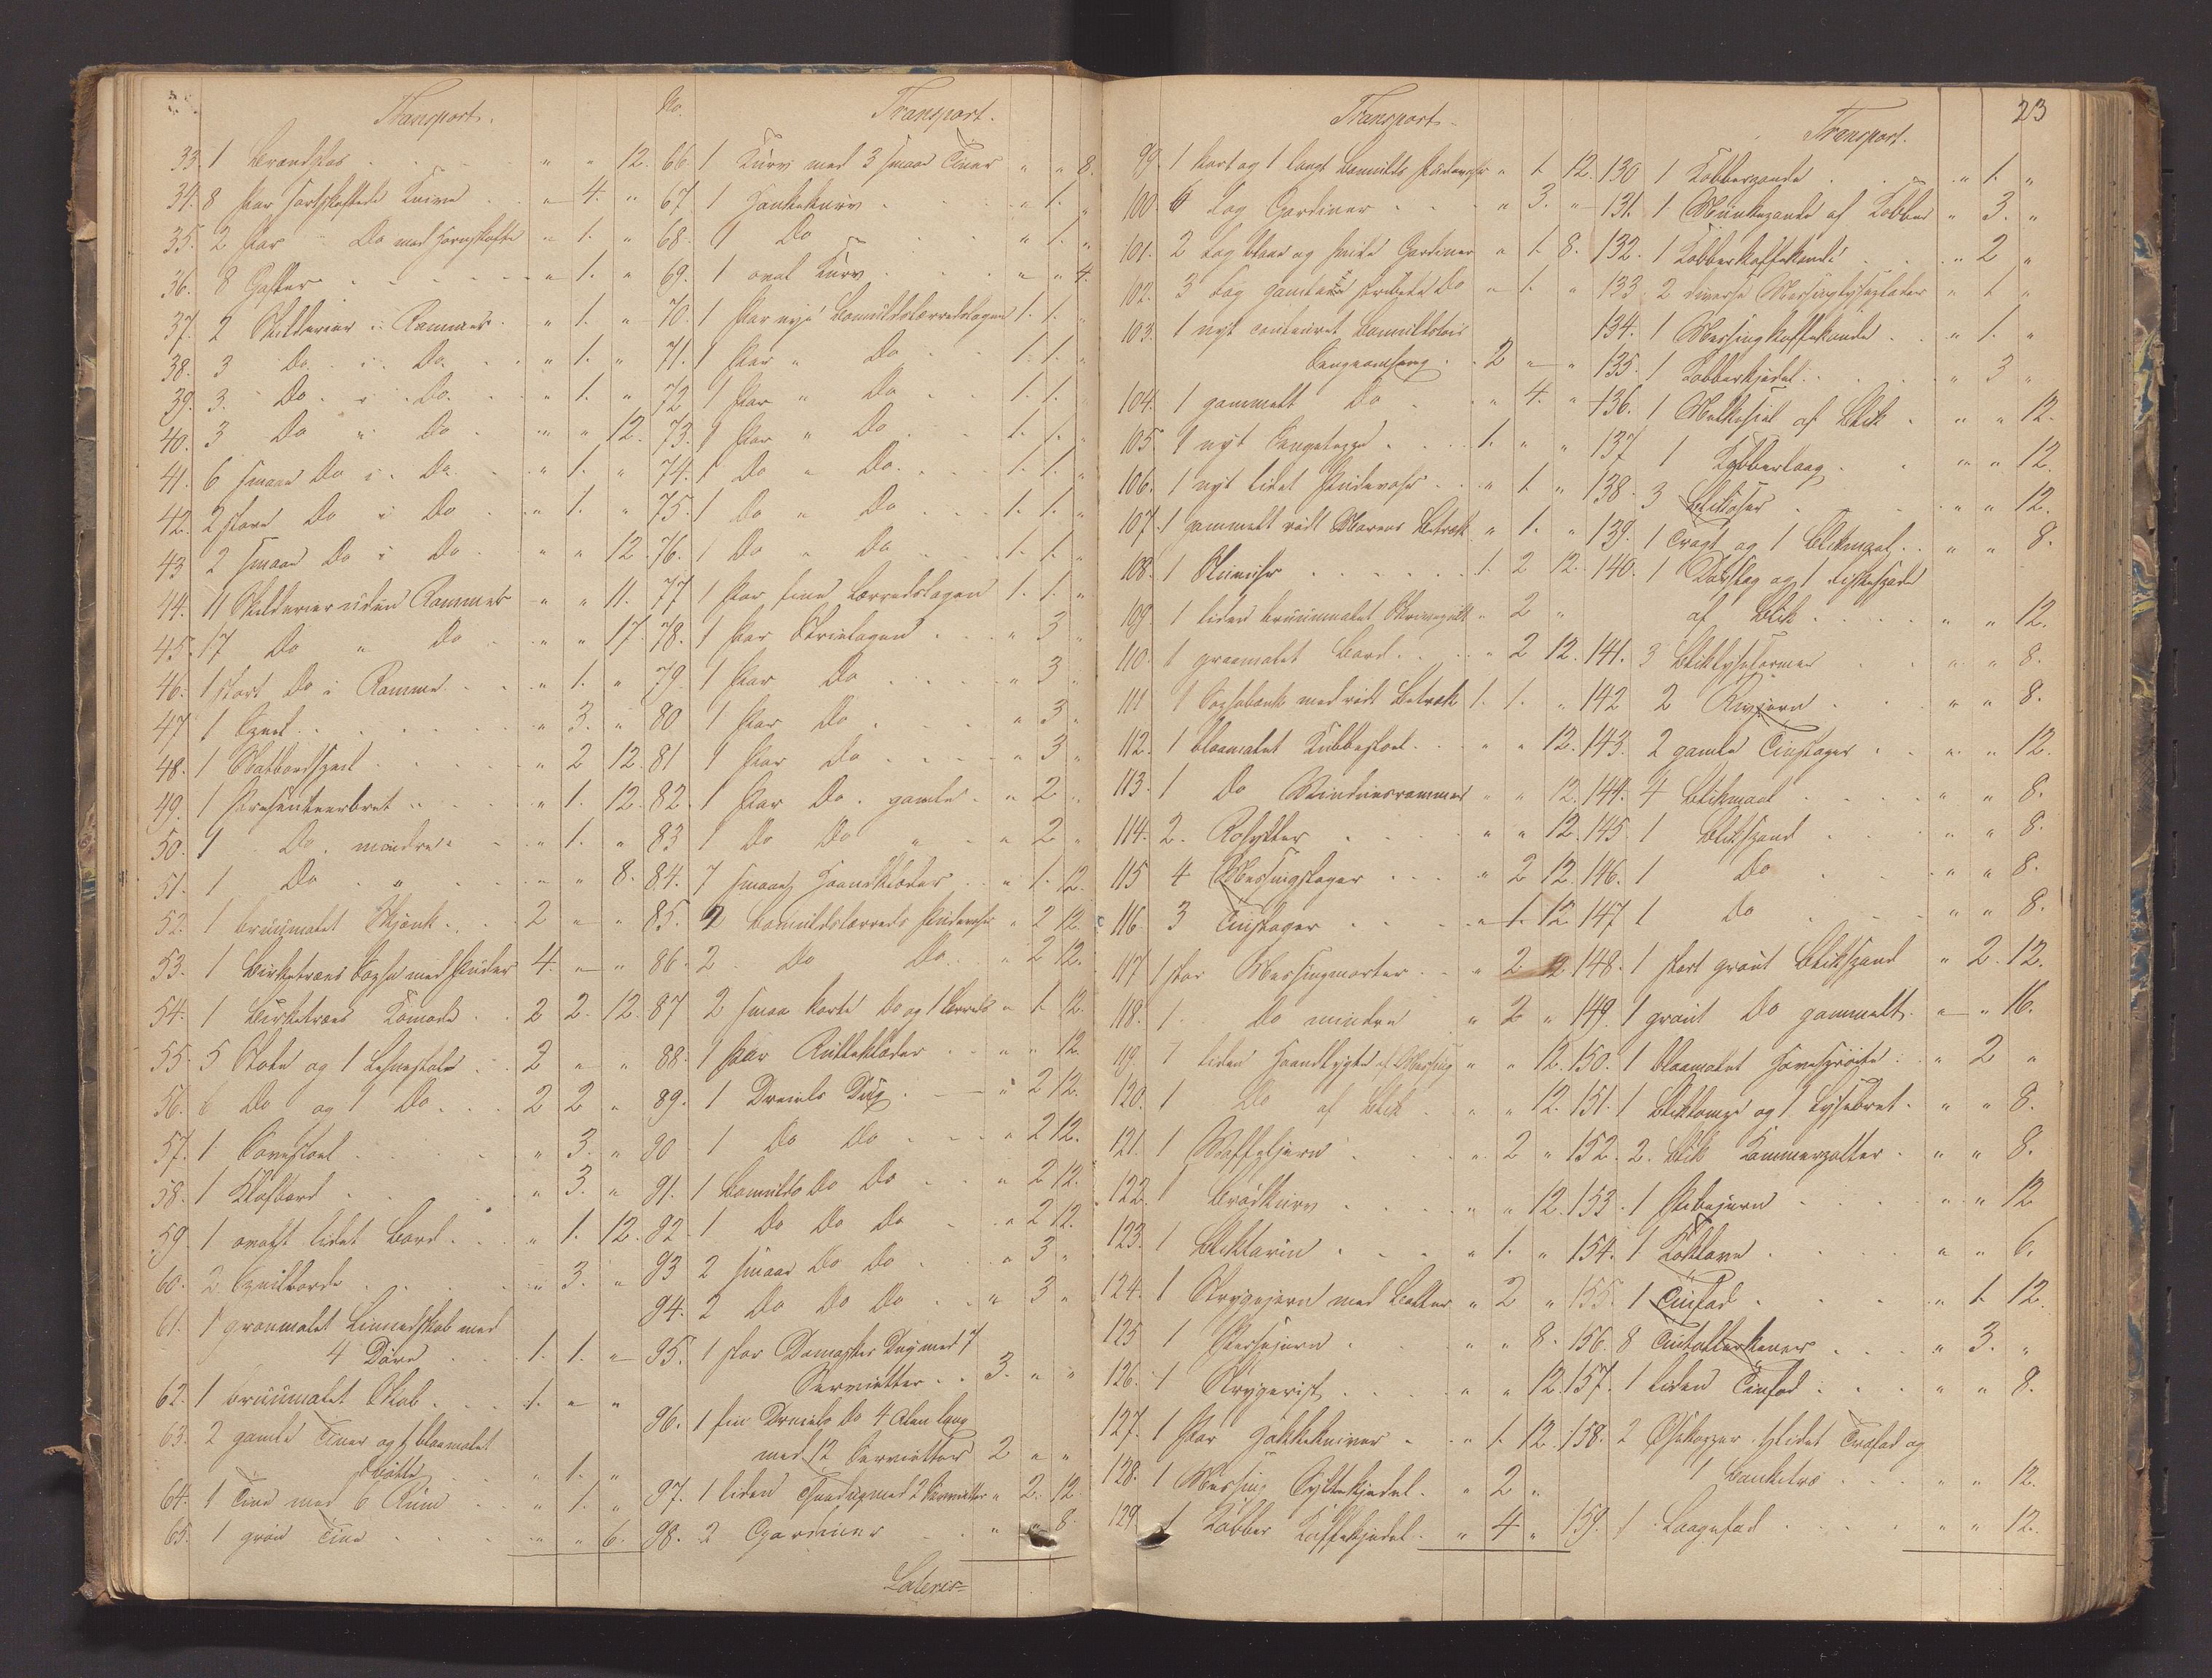 Transport.
33. 1 " " 12.
34. 8 Par Knive " 4. "
35. 2 Par Do med Hornskafte " 1. "
36. 8 Gafler " 1. "
37. 2 Skilderier i Rammer " 1. "
38. 3 Do. i Do. " 1. "
39. 3. Do. i Do. " 1. "
40. 3 Do i Do " " 12.
41. 6 smaae Do i Do " 1. "
42. 2 store Do i Do " 1. "
43 2 smaae Do i Do " " 12
44. 11 Skilderier uden Rammer " " 11.
45. 17 Do " Do " " 17.
46. 1 stort Do i Ramme " 1. "
47 1 " 3. "
48. 1 " 2 12.
49. 1 Præsenteerbret " 1. 12.
50. 1 Do. mindre " 1. "
51. 1 Do. " " " 8.
52. 1 bruunmalet Skjænk 2 " "
53. 1 Birketræes Sopha med Puder 4. " "
54. 1 Birketræes Komode 2 2. 12.
55 5 Stole og 1 Lehnestol 2 " "
56. 6 Do og 1 Do. 2 2 "
57. 1 " 3. "
58. 1 Klafbord " 3. "
59. 1 ovalt lidet Bord " 1. 12.
60. 2 Spilleborde " 3. "
61. 1 graamalet Linnedskab med
4 Døre 1. 1. "
62. 1 bruunmalet Skab 1. " "
63. 2 gamle Tiner og 1 blaamalet
Bøtte " 1. "
64. 1 Tine med 6 Rum " 1. "
65. 1 grøn Tine " " 6.
No. Transport.
66. 1 Kurv med 3 smaae Tiner " " 8.
67. 1 Hankekurv " 1. "
68. 1 Do " 1. "
69. 1 oval Kurv " " 4.
70. 1 Par nye Bomuldslærredslagen 1. 1. "
71. 1 Par " Do 1. 1. "
72 1 Par " Do 1. 1. "
73. 1 Par " Do 1. 1. "
74. 1 Do " Do. 1. 1. "
75. 1 Do " Do 1. 1. "
76. 1 Do " Do 1. 1. "
77 1 Par fine Lærredslagen 1. 1. "
78. 1 Par Strielagen " 3 "
79. 1 Par Do " 3 "
80 1 Par Do " 3 "
81 1 Par Do " 3 "
82. 1 Par Do. gamle " 2 "
83 1 Do Do " " 2 "
84. 7 smaae Haandklæder " 1. 12.
85. 2 Bomuldslærreds Pudevahr " 2 12.
86. 2 Do Do. " 2 12.
87 2 smaa korte Do og 1 Lærreds " 1. 12.
88. 1 Par Rulleklæder " " 12.
89. 1 Dreiels Dug " 2 12.
90 1 Do Do " 2 12.
91. 1 Bomulds Do Do " 2 12.
92. 1 Do Do Do " 2 12.
93 2 smaae Do Do " 3 "
94. 2 Do Do Do " 3 "
95. 1 stor Damaskes Dug med 7
Servietter 3. " "
96. 1 fin Dreiels Do 4 Alen lang
med 12 Servietter 2 " "
97. 1 liden Theedug med 2 Servietter " 2. 12.
98. 2 Gardiner " " 8.
Lateris
Transport.
99. 1 kort og 1 langt Bomulds Pudevahr " 1. 12.
100. 6 Fag Gardiner " 3. "
101. 2 Fag blaae og hvide Gardiner " 1. 8.
102. 3 Fag gamle stribede Do " 1. "
103. 1 nyt couleuret Bomuldstøis
Sengeomhæng 2 " "
104. 1 gammelt Do " 4. "
105. 1 nyt Sengeteppe 1. " "
106. 1 nyt lidet Pudevahr " 1. "
107. 1 gammelt rødt Betræk " 1. "
108. 1 1. 2 12.
109. 1 liden bruunmalet Skrivepult " 2 "
110. 1 graamalet Bord " 2 12.
111 1 Sophabænk med rødt Betræk 1. 1. "
112. 1 blaamalet Kubbestoel " " 12.
113. 1 Do Vinduesrammer " " 12.
114. 2. " " 12.
115 4 Messingstager " 2 12.
116 3 Tinstager " 1. 12.
117 1 stor Messingmorter " 2 12
118. 1 Do mindre " 2 "
119. 1 liden Haandlygte af Messing " " 12.
120. 1 Do af Blik " " 12.
121. 1 Vaffeljern " 2 "
122. 1 Brødkurv " " 12.
123. 1 Bliktarin " 1. "
124. 1 Strygejern med Bolter " 2 "
125 1 Pressejern " " 8.
126. 1 Strygerist " " 12.
127. 1 Par Hakkekniver " 1. 12.
128. 1 Messing Syltekjedel " 2 "
129 1 Kobber Kaffekjedel " 4 "
23
Transport.
130 1 Kobberpande " 1. "
131. 1 Munkepande af Kobber " 3. "
132. 1 Kobberkaffekande " 2 "
133 2 diverse Messinglyseplader " 1 "
134. 1 Messingkaffekande " 1. "
135. 1 Kobberkjedel " 3 "
136. 1 Melkesiel af Blik " " 12.
137 1 Kobberlaag " " 12.
138. 3 " " 12.
139. 1 Tragt og 1 " " 8.
140. 1 Dørslag og 1 Fiskespade
af Blik " " 12.
141. 3 Bliklyseformer " " 8.
142 2 Rivjern " " 8.
143. 2 gamle Tinstager " " 12.
144. 4 Blikmaal " " 8.
145. 1 Blikspand " " 8.
146. 1 Do " " 8.
147 1 Do " " 8.
148. 1 stort grønt Blikspand " 2. 12.
149 1 grønt Do gammelt " " 16.
150. 1 blaamalet Havesprøite " 2 "
151. 1 Bliklampe og 1 Lysebret " " 8.
152. 2. Blik Kammerpotter " " 8.
153. 1 Pibejern " " 12
154. 1 " " 6.
155. 1 Tinfad " 1. 12.
156. 8 Tintallerkener " 3. "
157. 1 liden Tinfad " " 8.
158. 2 Øsekopper 1 lidet Træfad og
1 Banketræ " " 12.
159. 1 Laagefad " " 12.